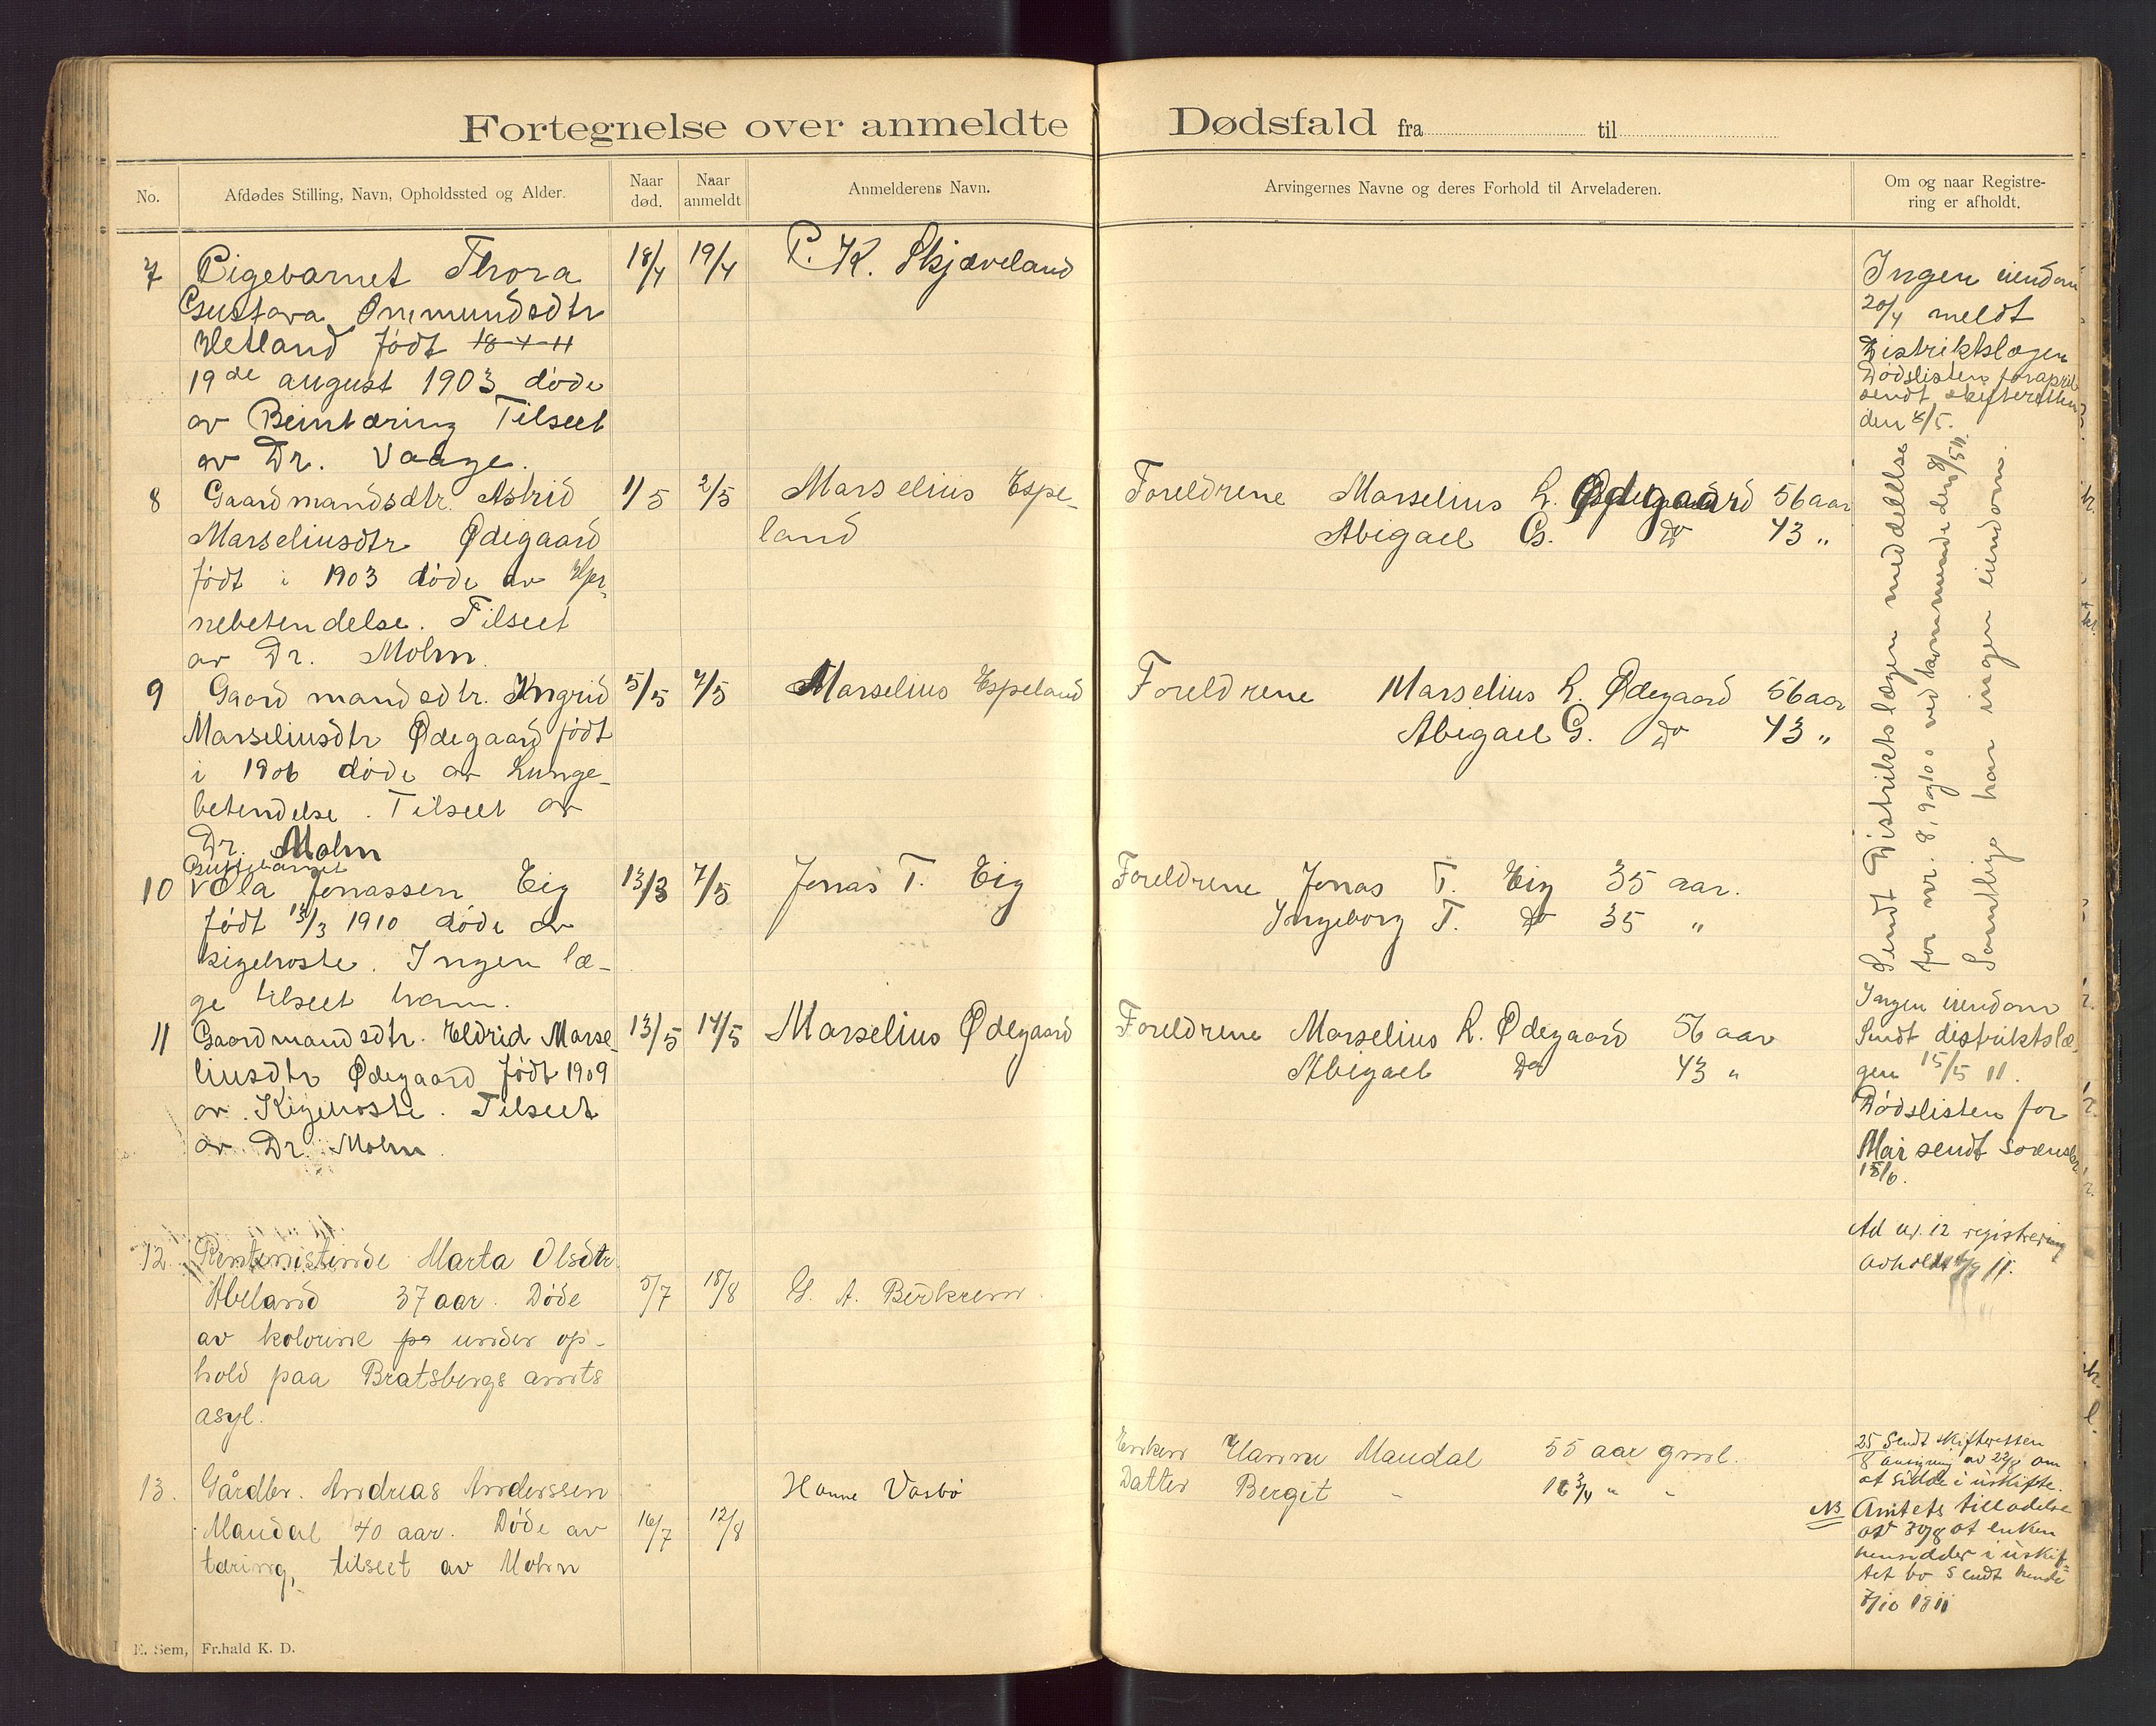 Fortegnelse over anmeldte Dødsfald fra til
No.
Afdødes Stilling, Navn, Opholdssted og Alder.
Naar
død.
Naar
anmeldt
Anmelderens Navn.
Arvingernes Navne og deres Forhold til Arveladeren.
Om og naar Registre-
ring er afholdt.
7 Pigebarnet Thora 18/4 19/4 P. K. Skjæveland
Gustava Ommundsdtr
Hetland født 18-4-11
19de august 1903 døde
av Beintæring Tilseet
av Dr. Vaage.
Ingen eiendom
20/4 meldt
Distriktslægen
Dødslisten for april
sendt skifteretten
den 4/5.
8 Gaardmandsdtr. Astrid 1/5 2/5 Marselius Espe- Foreldrene Marselius L. Ødegaard 56 aar
Marseliusdtr Ødegaard land Abigael G. Do 43 "
født i 1903 døde av Hjer-
nebetendelse. Tilseet
av Dr. Mohn.
9 Gaardmandsdtr. Ingrid 5/5 7/5 Marselius Espeland Foreldrene Marselius L. Ødegaard 56 aar
Marseliusdtr Ødegaard født Abigael G. Do 43 "
i 1906 døde av Lunge-
betendelse. Tilseet av
Dr. Mohn
Guttebarnet
10 Ola Jonassen Eig 13/3 7/5 Jonas T. Eig Foreldrene Jonas T. Eig 35 aar.
født 13/3 1910 døde av Ingeborg T. Do 35 "
kigehoste. Ingen læ-
ge tilseet ham.
Sendt Distriktslægen meddelelse
for nr. 8, 9 og 10 ved kommende den 8/5 11.
Samtlige har ingen eiendom.
11 Gaardmandsdtr. Eldrid Marse- 13/5 14/5 Marselius Ødegaard Foreldrene Marselius L. Ødegaard 56 aar
liusdtr Ødegaard født 1909 Abigael Do 43 "
av Kigehoste. Tilseet
av Dr. Mohn.
Ingen eiendom
Sendt distriktslæ-
gen 15/5 11.
Dødslisten for
Mai sendt
15/6.
12. Rentenistinde Marta Olsdtr.
Abeland 37 aar. Døde 5/7 18/8 G. A. Birkrem.
av kolerine pa under op-
hold paa Bratsbergs amts
asyl.
Ad nr. 12 registrering
avholdt /9 11.
13. Gårdbr. Andreas Anderssen Hanne Vasbø
Maudal 40 aar. Døde av 16/7 12/8
tæring, tilseet av Mohn
Enken Hanne Maudal 55 aar gml.
Datter Bergit - 16 3/4 " -
25/8 Sendt skifteretten
ansøgning av 22/8 om
at sidde i uskifte.
NB Amtets tilladelse
av 30/8 at enken
hensidder i uskif-
tet bo sendt hende
7/10 1911
E. Sem, Fr.hald K. D.